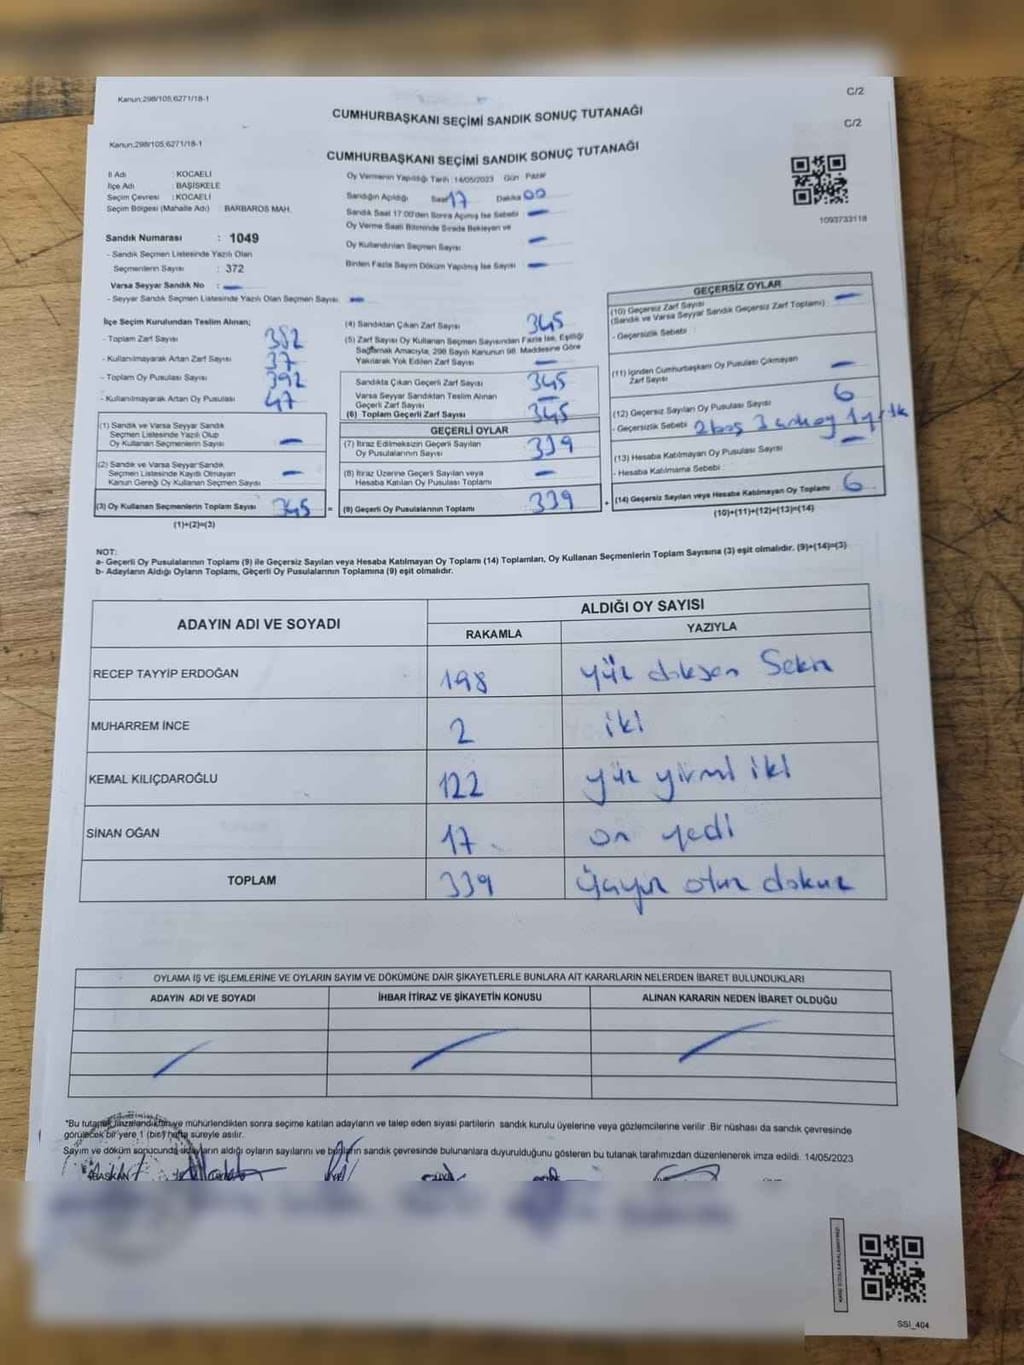 Kanun:298/105;6271/18-1
C/2
CUMHURBAŞKANI SEÇİMİ SANDIK SONUÇ TUTANAĞI
C/2
Kanun:298/105;6271/18-1
CUMHURBAŞKANI SEÇİMİ SANDIK SONUÇ TUTANAĞI
İl Adı : KOCAELİ
İlçe Adı : BAŞİSKELE
Seçim Çevresi : KOCAELİ
Seçim Bölgesi (Mahalle Adı) : BARBAROS MAH.
Sandık Numarası : 1049
- Sandık Seçmen Listesinde Yazılı Olan
Seçmenlerin Sayısı : 372
Varsa Seyyar Sandık No : -
- Seyyar Sandık Seçmen Listesinde Yazılı Olan Seçmen Sayısı: -
Oy Vermenin Yapıldığı Tarih :14/05/2023 Gün Pazar
Sandığın Açıldığı Saat 17 Dakika 00
Sandık Saat 17:00'den Sonra Açılmış İse Sebebi -
Oy Verme Saati Bitiminde Sırada Bekleyen ve
Oy Kullandırılan Seçmen Sayısı -
Birden Fazla Sayım Döküm Yapılmış İse Sayısı -
1093733118
İlçe Seçim Kurulundan Teslim Alınan;
- Toplam Zarf Sayısı 382
- Kullanılmayarak Artan Zarf Sayısı 37
- Toplam Oy Pusulası Sayısı 392
- Kullanılmayarak Artan Oy Pusulası 47
(1) Sandık ve Varsa Seyyar Sandık
Seçmen Listesinde Yazılı Olup
Oy Kullanan Seçmenlerin Sayısı -
(2) Sandık ve Varsa Seyyar Sandık
Seçmen Listesinde Kayıtlı Olmayan
Kanun Gereği Oy Kullanan Seçmen Sayısı -
(3) Oy Kullanan Seçmenlerin Toplam Sayısı 345
(1)+(2)=(3)
(4) Sandıktan Çıkan Zarf Sayısı 345
(5) Zarf Sayısı Oy Kullanan Seçmen Sayısından Fazla İse, Eşitliği
Sağlamak Amacıyla, 298 Sayılı Kanunun 98. Maddesine Göre
Yakılarak Yok Edilen Zarf Sayısı -
Sandıkta Çıkan Geçerli Zarf Sayısı 345
Varsa Seyyar Sandıktan Teslim Alınan
Geçerli Zarf Sayısı -
(6) Toplam Geçerli Zarf Sayısı 345
GEÇERLİ OYLAR
(7) İtiraz Edilmeksizin Geçerli Sayılan
Oy Pusulalarının Sayısı 339
(8) İtiraz Üzerine Geçerli Sayılan veya
Hesaba Katılan Oy Pusulası Toplamı -
= (9) Geçerli Oy Pusulalarının Toplamı 339
GEÇERSİZ OYLAR
(10) Geçersiz Zarf Sayısı
(Sandık ve Varsa Seyyar Sandık Geçersiz Zarf Toplamı) -
- Geçersizlik Sebebi :
(11) İçinden Cumhurbaşkanı Oy Pusulası Çıkmayan
Zarf Sayısı -
(12) Geçersiz Sayılan Oy Pusulası Sayısı 6
- Geçersizlik Sebebi 2 boş 3 1
(13) Hesaba Katılmayan Oy Pusulası Sayısı -
- Hesaba Katılmama Sebebi :
+ (14) Geçersiz Sayılan veya Hesaba Katılmayan Oy Toplamı 6
(10)+(11)+(12)+(13)=(14)
NOT:
a- Geçerli Oy Pusulalarının Toplamı (9) ile Geçersiz Sayılan veya Hesaba Katılmayan Oy Toplamı (14) Toplamları, Oy Kullanan Seçmenlerin Toplam Sayısına (3) eşit olmalıdır. (9)+(14)=(3)
b- Adayların Aldığı Oyların Toplamı, Geçerli Oy Pusulalarının Toplamına (9) eşit olmalıdır.
ADAYIN ADI VE SOYADI ALDIĞI OY SAYISI
RAKAMLA YAZIYLA
RECEP TAYYİP ERDOĞAN 198 yüz doksan Sekiz
MUHARREM İNCE 2 iki
KEMAL KILIÇDAROĞLU 122 yüz yirmi iki
SİNAN OĞAN 17 on yedi
TOPLAM 339 üçyüz otuz dokuz
OYLAMA İŞ VE İŞLEMLERİNE VE OYLARIN SAYIM VE DÖKÜMÜNE DAİR ŞİKAYETLERLE BUNLARA AİT KARARLARIN NELERDEN İBARET BULUNDUKLARI
ADAYIN ADI VE SOYADI İHBAR İTİRAZ VE ŞİKAYETİN KONUSU ALINAN KARARIN NEDEN İBARET OLDUĞU
*Bu tutanak imzalandıktan ve mühürlendikten sonra seçime katılan adayların ve talep eden siyasi partilerin sandık kurulu üyelerine veya gözlemcilerine verilir .Bir nüshası da sandık çevresinde
görülecek bir yere 1 (bir) hafta süreyle asılır.
Sayım ve döküm sonucunda adayların aldığı oyların sayılarını ve bunların sandık çevresinde bulunanlara duyurulduğunu gösteren bu tutanak tarafımızdan düzenlenerek imza edildi. 14/05/2023
BAŞKAN
SSI_404